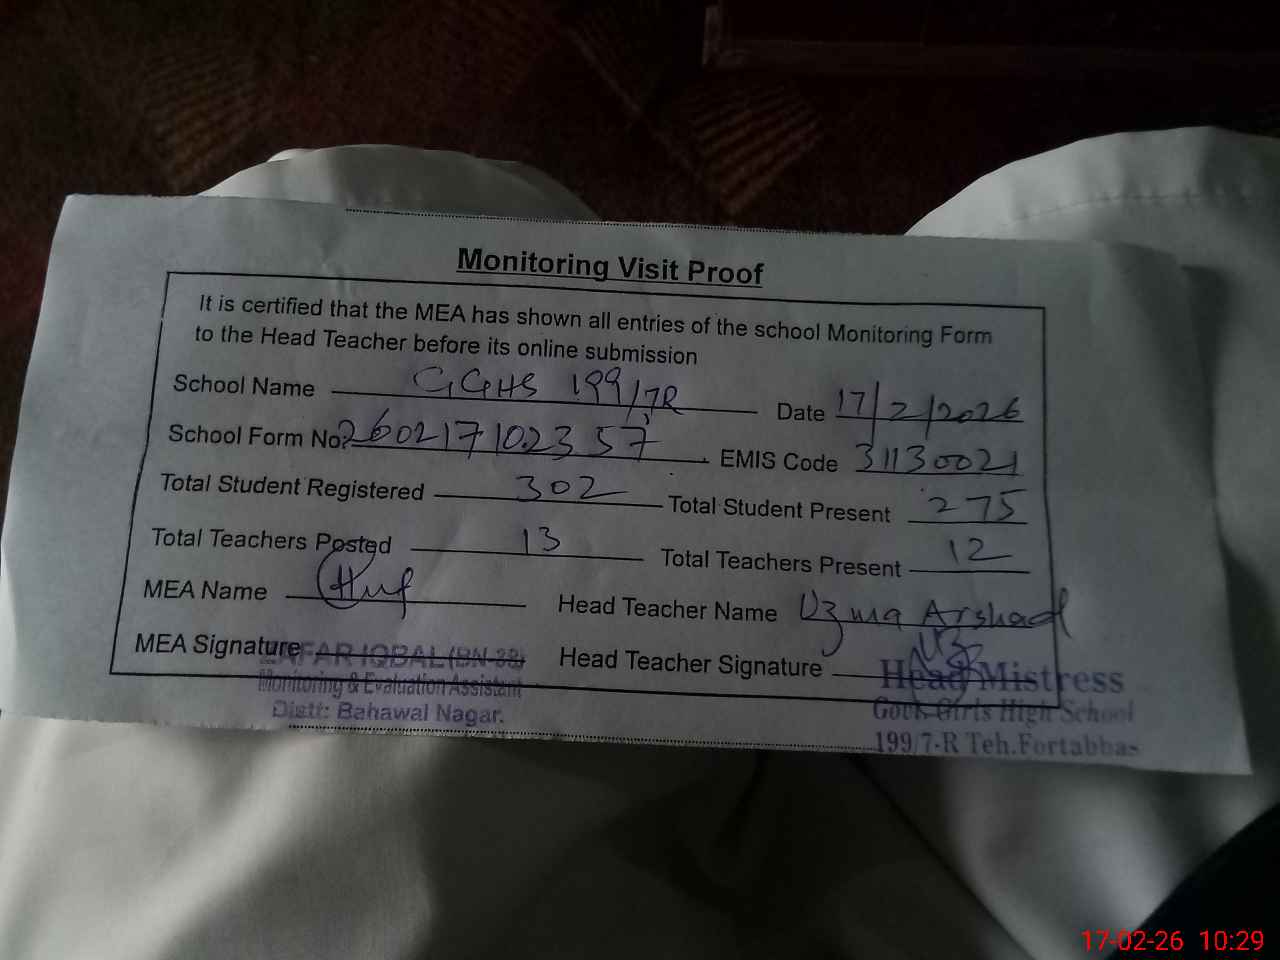 Monitoring Visit Proof
It is certified that the MEA has shown all entries of the school Monitoring Form
to the Head Teacher before its online submission
School Name GGHS 199/7R Date 17/2/2026
School Form No. 260217102357 EMIS Code 31130021
Total Student Registered 302 Total Student Present 275
Total Teachers Posted 13 Total Teachers Present 12
MEA Name Head Teacher Name Uzma Arshad
MEA Signature Head Teacher Signature
ZAFAR IQBAL (BN-38)
Monitoring & Evaluation Assistant
Distt: Bahawal Nagar.
Head Mistress
Govt. Girls High School
199/7-R Teh.Fortabbas
17-02-26 10:29